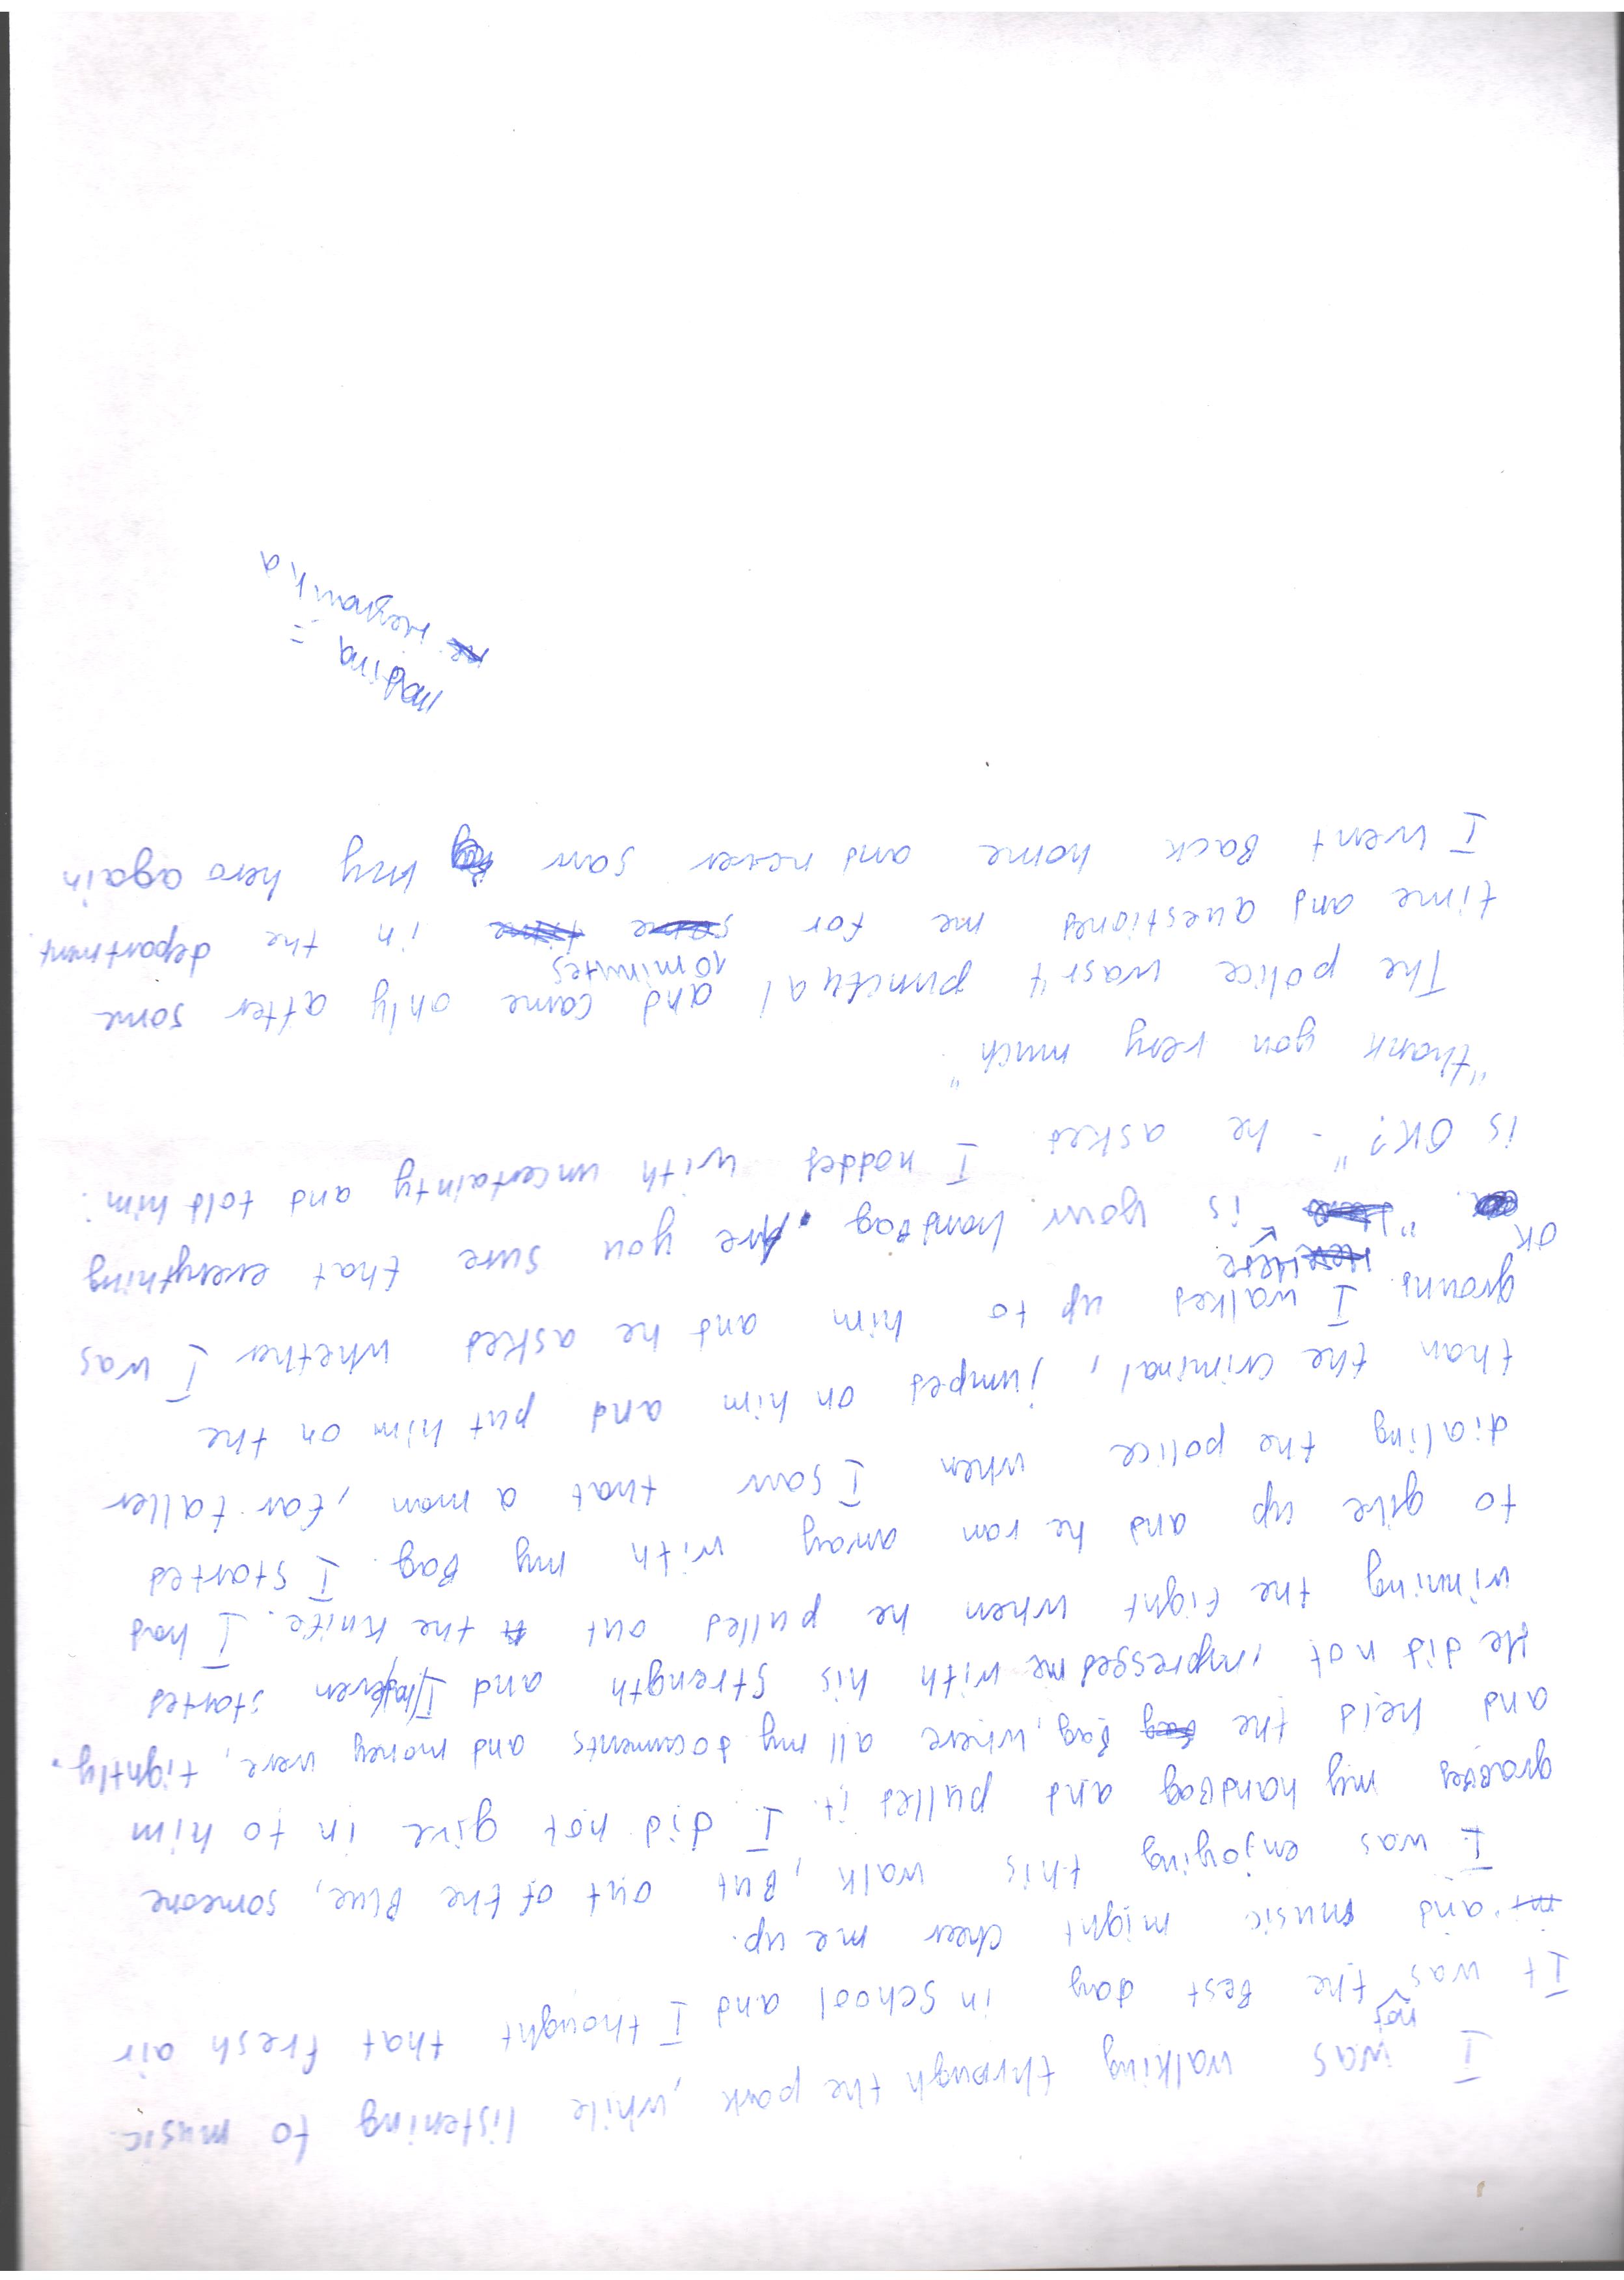 I was walking through the park, while listening to music.
It was not the Best day in school and I thought that fresh air
and music might cheer me up.
I was enjoying this walk, But out of the Blue, someone
graBBed my handBag and pulled it. I did not give in to him
and held the Bag, where all my documents and money were, tightly.
He did not impressed me with his strength and I even started
winning the fight when he pulled out the knife. I had
to give up and he ran away with my Bag. I started
dialing the police when I saw that a man, far taller
than the criminal, jumped on him and put him on the
ground. I walked up to him and he asked whether I was
OK. "Here is your handBag. Are you sure that everything
is OK?" - he asked. I nodded with uncertainty and told him:
"thank you very much".
The police wasn't punctual and came only after some
time and questioned me for 10 minutes in the department.
I went Back home and never saw my hero again